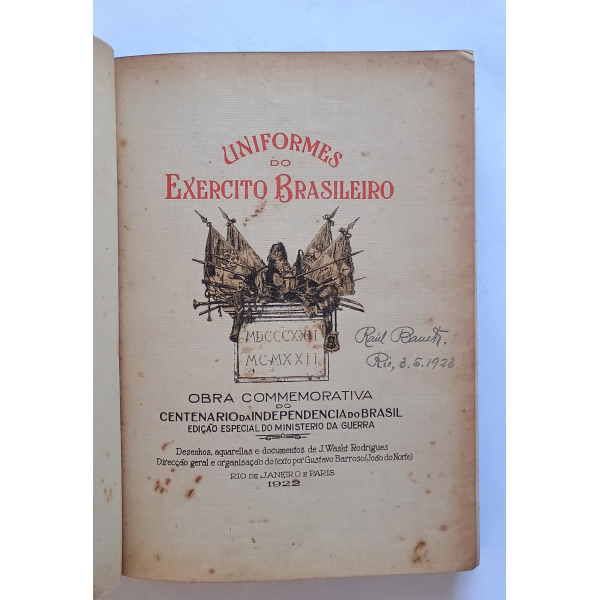 UNIFORMES
DO
EXERCITO BRASILEIRO
MDCCCXXII
MCMXXII
Raul
Rio, 3.5.1923.
OBRA COMMEMORATIVA
DO
CENTENARIO DA INDEPENDENCIA DO BRASIL
EDIÇÃO ESPECIAL DO MINISTERIO DA GUERRA
Desenhos, aquarellas e documentos de J. Washt Rodrigues
Direcção geral e organisação do texto por Gustavo Barroso (João do Norte)
RIO DE JANEIRO E PARIS
1922